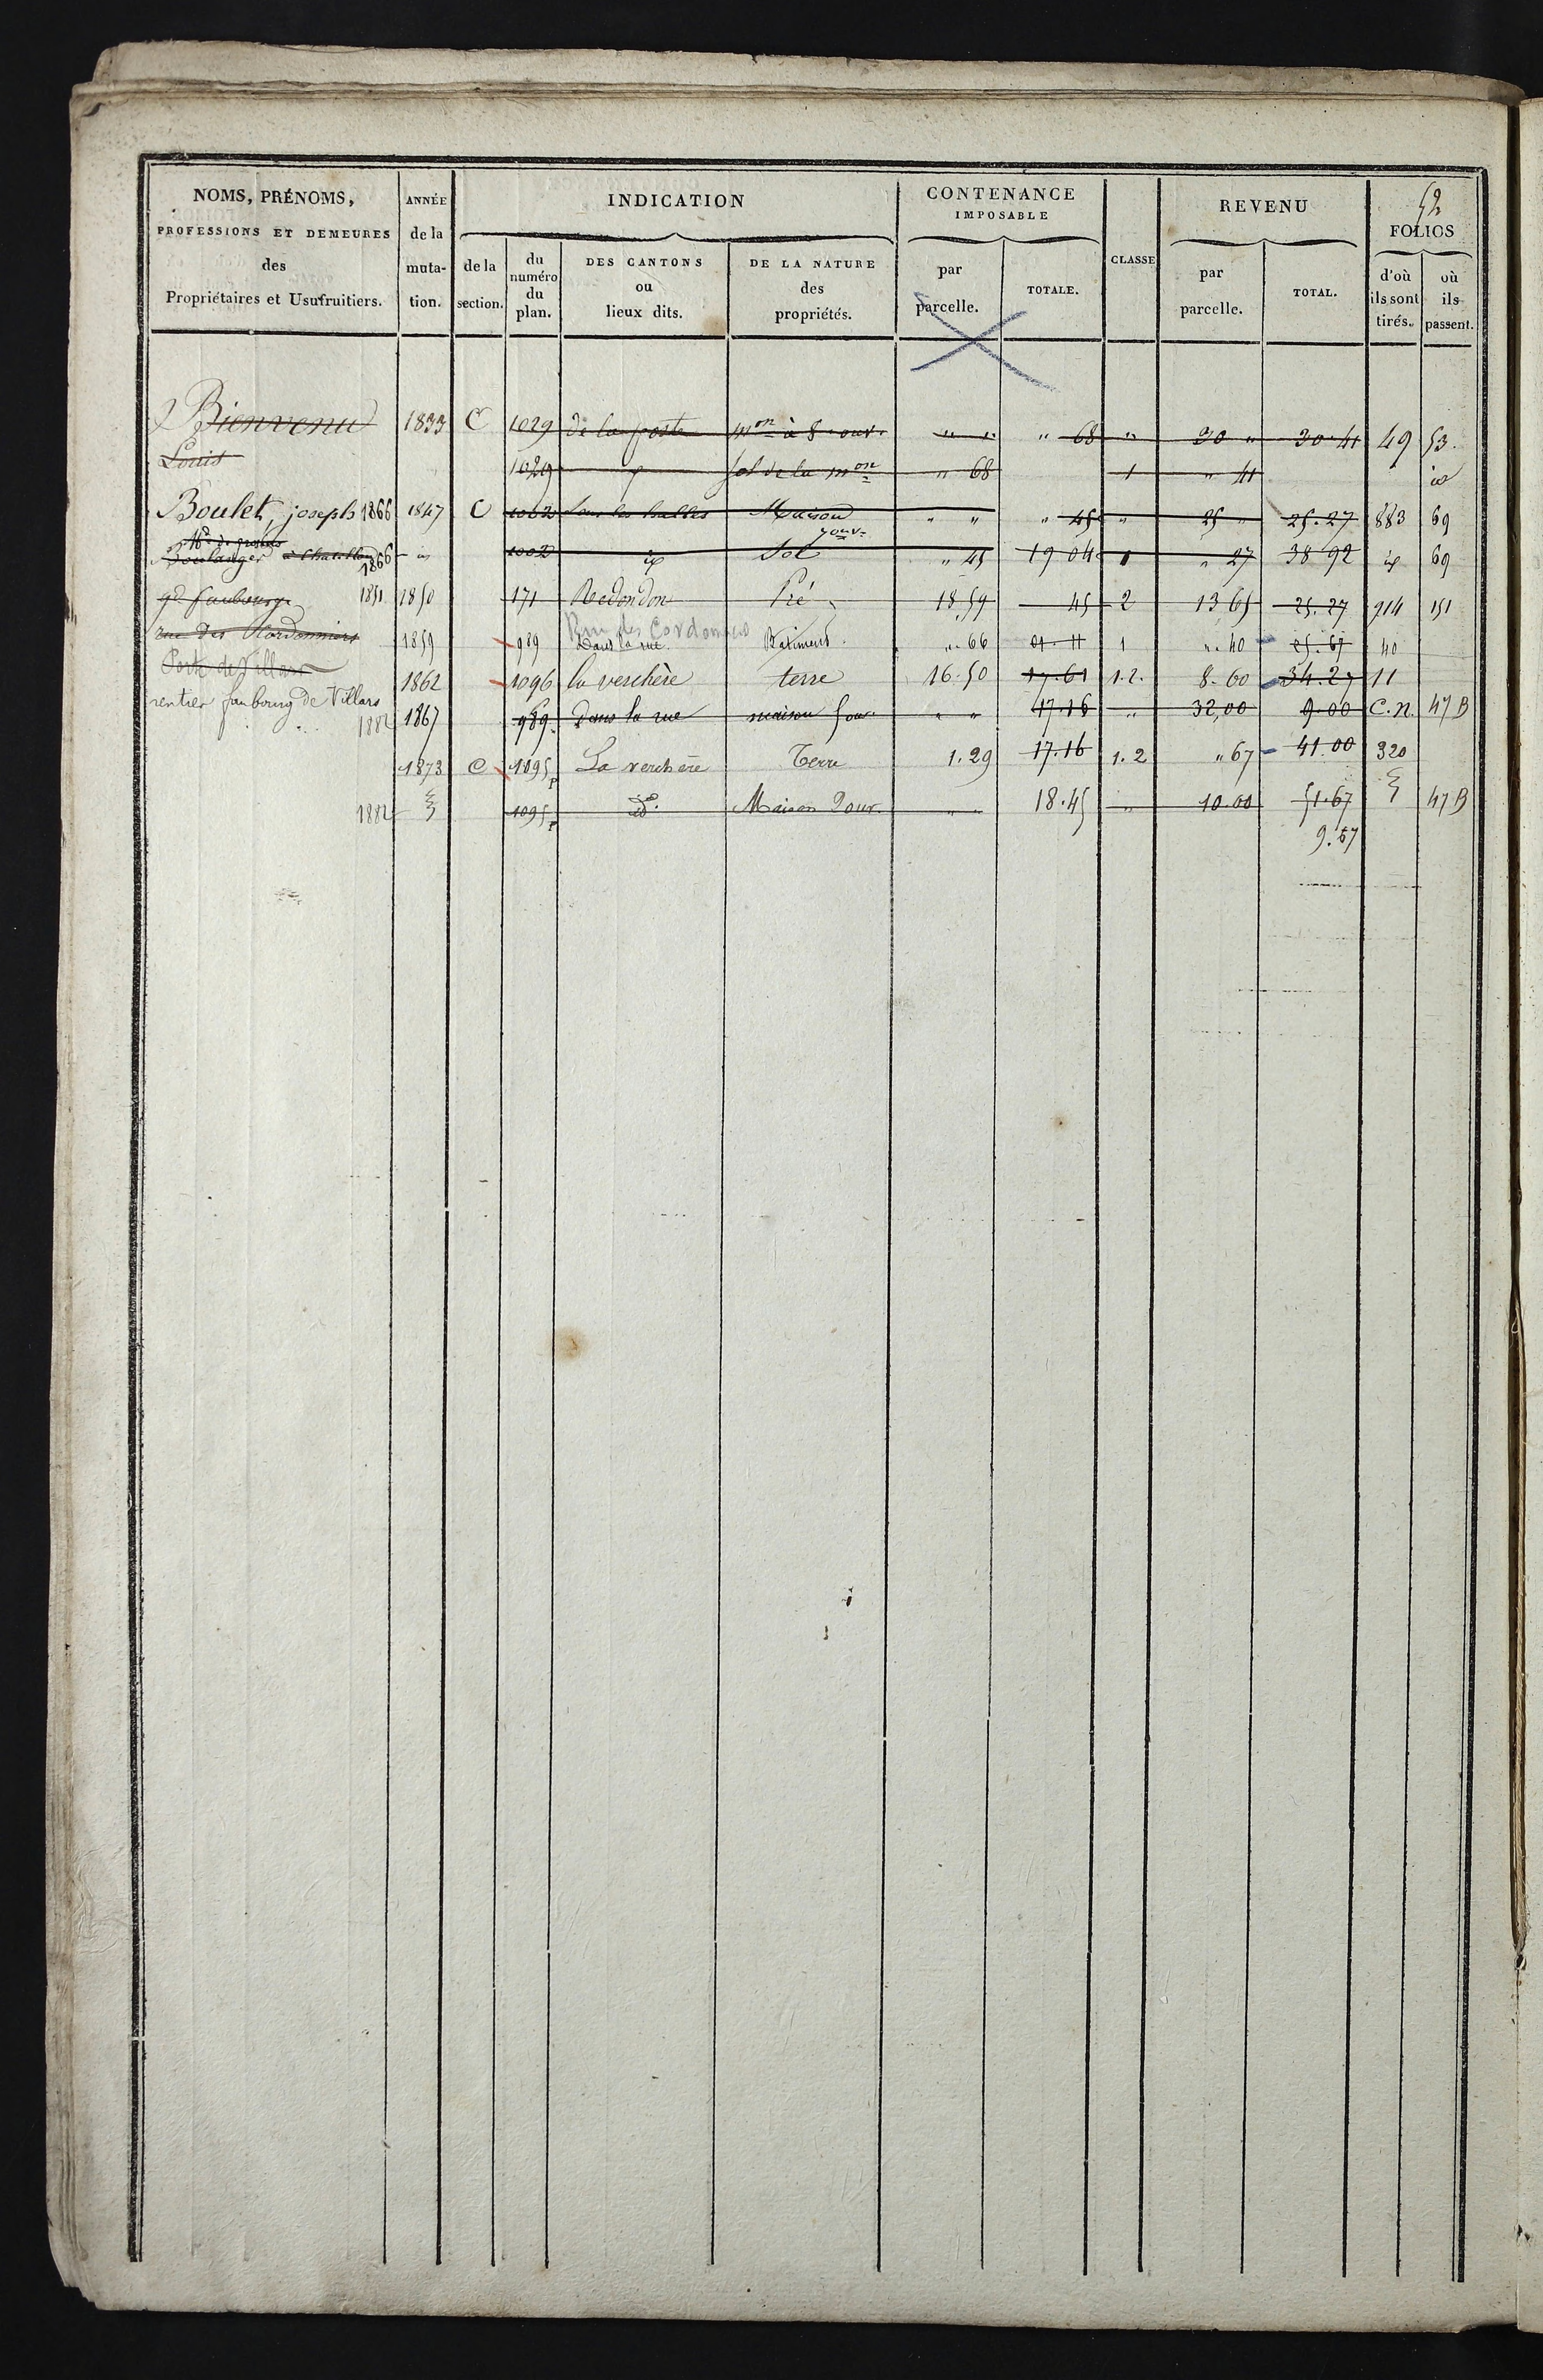 52
NOMS, PRÉNOMS,
PROFESSIONS ET DEMEURES
des
Propriétaires et Usufruitiers.
ANNÉE
de la
muta-
tion.
INDICATION
de la
section.
du
numéro
du
plan.
DES CANTONS
ou
lieux dits.
DE LA NATURE
des
propriétés.
CONTENANCE
IMPOSABLE
par
parcelle.
TOTALE.
CLASSE
REVENU
par
parcelle.
TOTAL.
FOLIOS
d'où
ils sont
tirés.
où
ils
passent.
Bienvenu 1833 C 1029 de la poste mon à 8 ouv. " " " 68 " 30 " 30.41 49 53.
Louis 1029 sol de la mon " 68 1 " 41 id
Boulet, joseph 1866 1847 C 1002 Sous les halles Maison 7 ouv. " " " 45 " 25 " 25.27 883 69
Boulanger à Chatillon 1866 id 1002 id Sol " 45 19 04 1 " 27 38 92 id 69
gd faubourg 1851 1850 171 Redondon Pré 18.59 45 2 13 65 25.27 914 151
rue des Cordonniers 1859 989 Rue des Cordonniers Dans la rue Batiment ".66 1 ".40 25.67 40
Porte de Villars
1862 1096 la verchère terre 16.50 17.61 1.2. 8.60 34.27 11
rentier faubourg de Villars
1882 1867 989 Dans la rue maison " " 17.16 " 32,00 9.00 C.N. 47 B
1873 C 1095p La verchère Terre 1.29 17.16 1.2 " 67 41.00 320
1882 1095p do Maison 2 ouv. " " 18.45 " 10.00 51.67 47 B
9.67